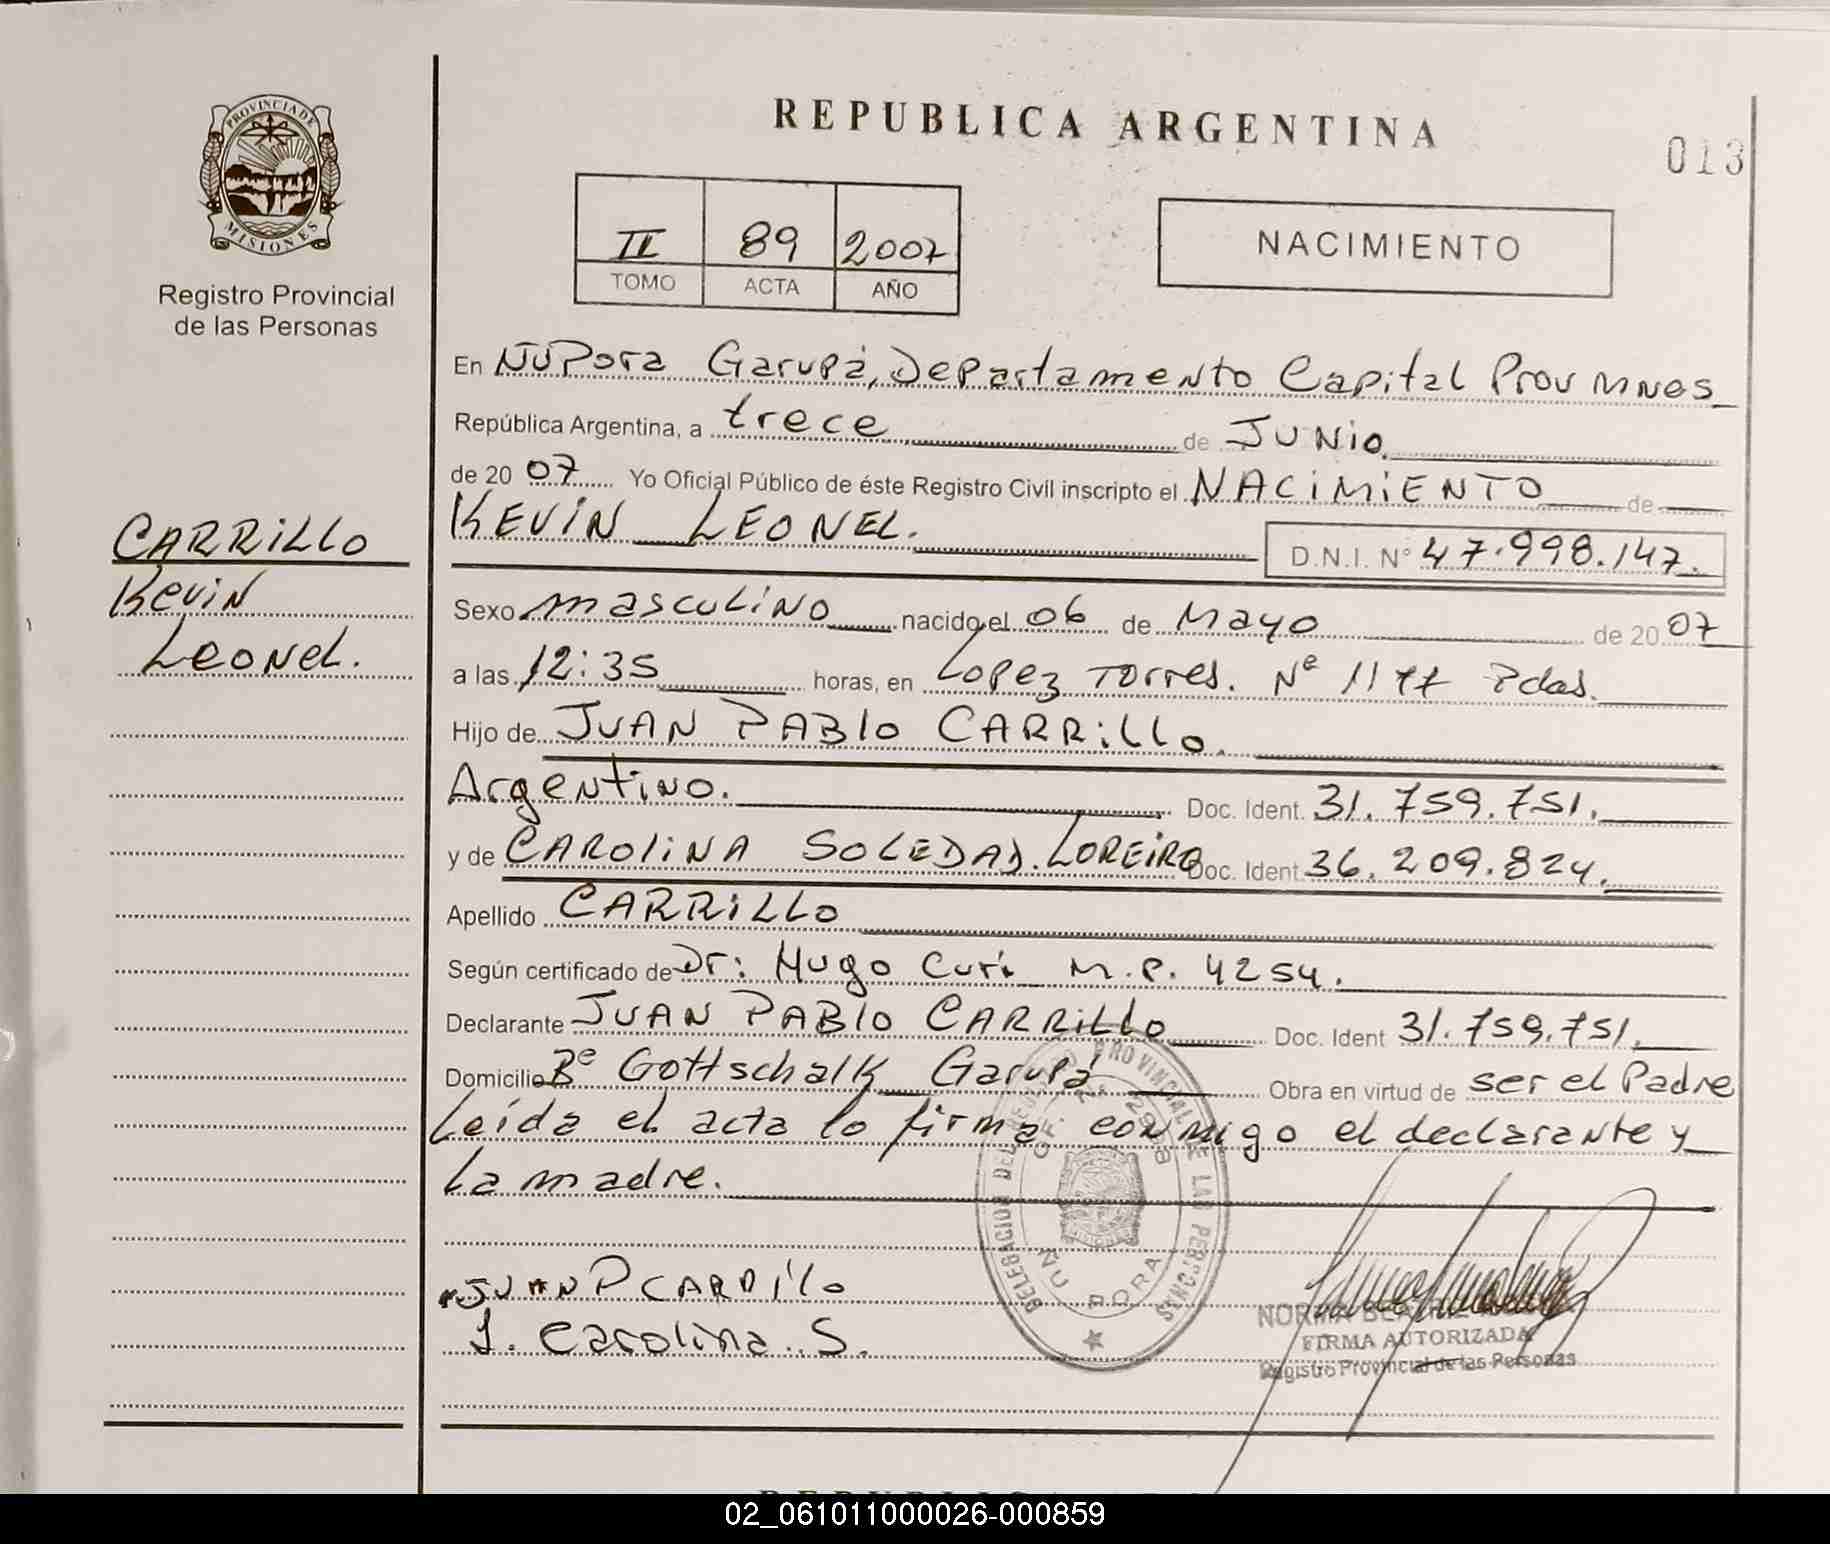 REPUBLICA ARGENTINA
013
PROVINCIA DE
MISIONES
Registro Provincial
de las Personas
II 89 2007
TOMO ACTA AÑO
NACIMIENTO
En ÑUPora Garupá, Departamento Capital Prov Mnes
República Argentina, a trece de JUNIO
de 2007 Yo Oficial Público de éste Registro Civil inscripto el NACIMIENTO de
KEVIN LEONEL.
D.N.I. Nº 47.998.147.
CARRILLO
Kevin
Leonel.
Sexo masculino nacido el 06 de Mayo de 2007
a las 12:35 horas, en Lopez Torres. Nº 1177 Pdas.
Hijo de JUAN PABlO CARRiLLo.
Argentino. Doc. Ident. 31.759.751.
y de CAROliNA SOLEDAD. LOREiRO Doc. Ident. 36.209.824.
Apellido CARRiLLO
Según certificado de Dr: Hugo Curi M.P. 4254.
Declarante JUAN PABlO CARRiLLo Doc. Ident 31.759.751.
Domicilio Bº Gottschalk Garupá Obra en virtud de ser el Padre
Leída el acta lo firma conmigo el declarante y
la madre.
DELEGACION DEL REGISTRO PROVINCIAL DE LAS PERSONAS
ÑU PORA
JUAN P CARRILLO
L. Carolina S.
NORMA
FIRMA AUTORIZADA
Registro Provincial de las Personas
02_061011000026-000859